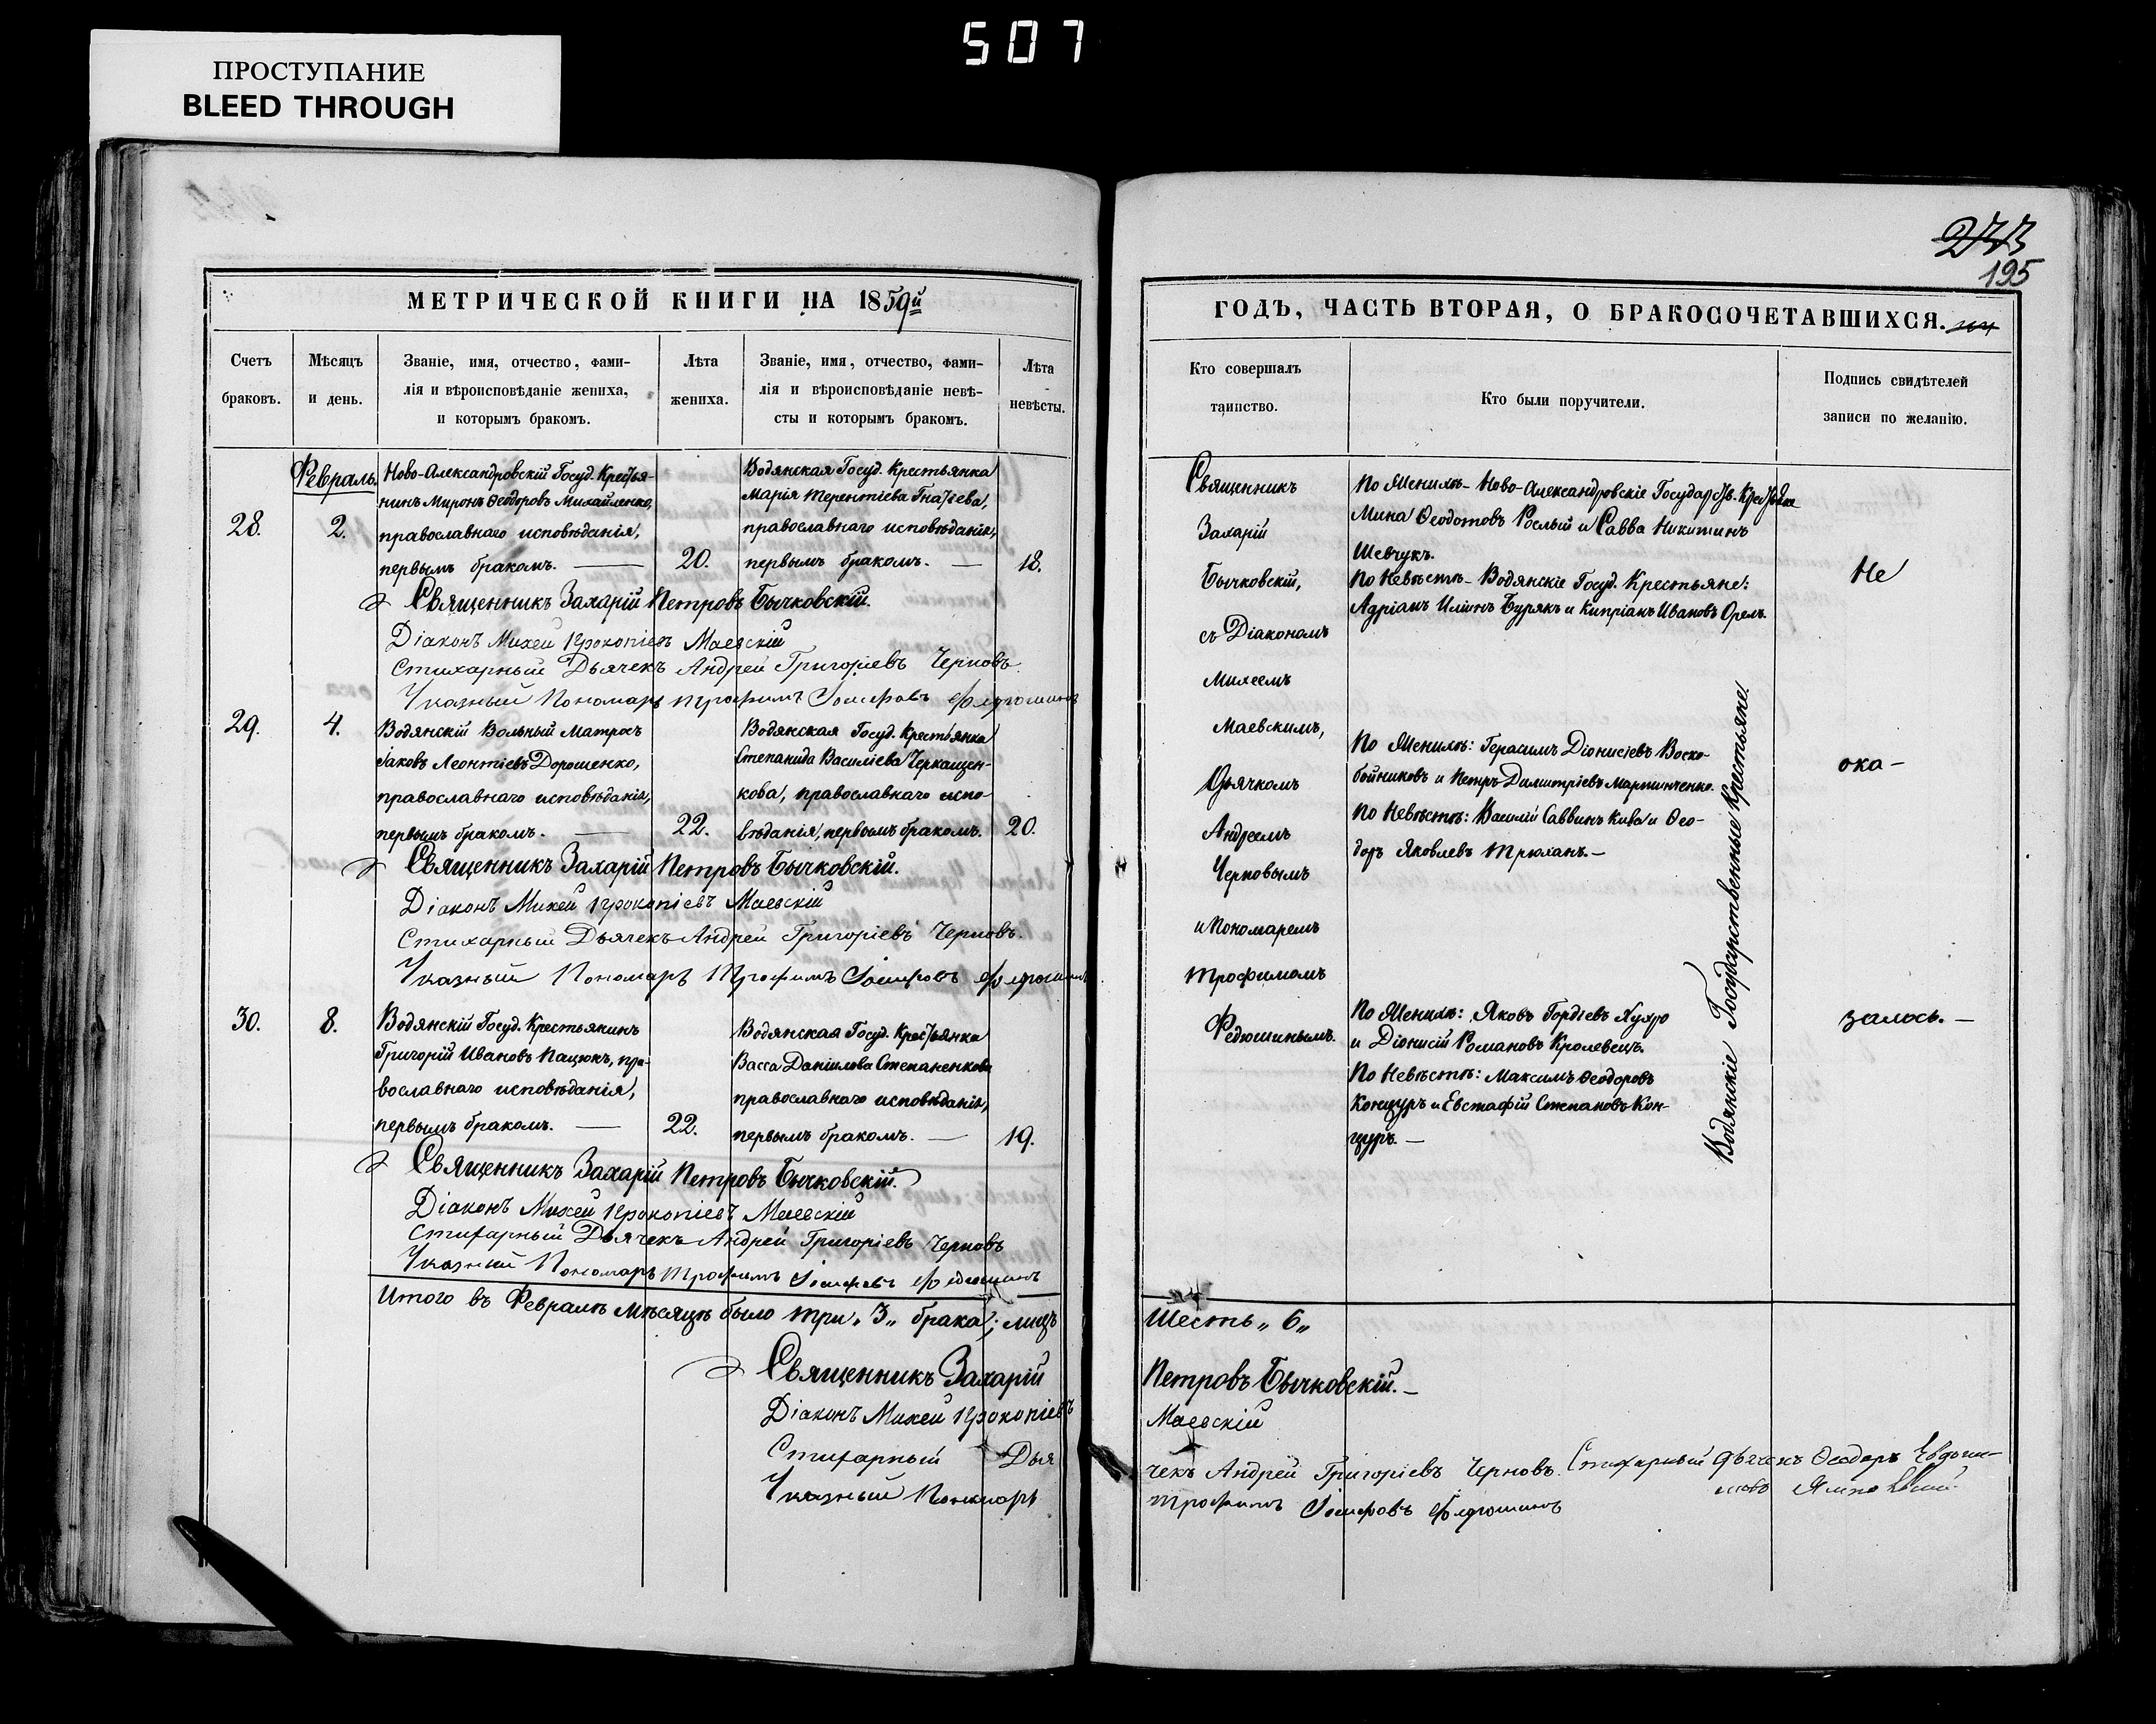 507
ПРОСТУПАНИЕ
BLEED THROUGH
195
МЕТРИЧЕСКОЙ КНИГИ НА 1859й
Счетъ
браковъ.
Мѣсяцъ
и день.
Званіе, имя, отчество, фами-
лія и вѣроисповѣданіе жениха,
и которымъ бракомъ.
Лѣта
жениха.
Званіе, имя, отчество, фами-
лія и вѣроисповѣданіе невѣ-
сты и которымъ бракомъ.
Лѣта
невѣсты.
Февраль.
28.
2.
Ново-Александровскій Госуд. Крестья-
нинъ Миронъ Ѳеодоровъ Михайленко,
православнаго исповѣданія,
первымъ бракомъ. —
20.
Водянская Госуд. Крестьянка
Марія Терентіева Гнатева,
православнаго исповѣданія,
первымъ бракомъ. —
18.
Священникъ Захарій Петровъ Бычковскій.
Діаконъ Михей Прокопіевъ Маевскій
Стихарный Дьячекъ Андрей Григоріевъ Черновъ.
Указный Пономарь Трофимъ Іосифовъ Федюшинъ
29.
4.
Водянскій Вольный Матросъ
Іаковъ Леонтіевъ Дорошенко,
православнаго исповѣданія,
первымъ бракомъ. —
22.
Водянская Госуд. Крестьянка
Степанида Василіева Черкащен-
кова, православнаго испо-
вѣданія, первымъ бракомъ.
20.
Священникъ Захарій Петровъ Бычковскій.
Діаконъ Михей Прокопіевъ Маевскій
Стихарный Дьячекъ Андрей Григоріевъ Черновъ.
Указный Пономарь Трофимъ Іосифовъ Федюшинъ
30.
8.
Водянскій Госуд. Крестьянинъ
Григорій Ивановъ Пацюкъ, пра-
вославнаго исповѣданія,
первымъ бракомъ. —
22.
Водянская Госуд. Крестьянка
Васса Даніилова Степаненкова
православнаго исповѣданія,
первымъ бракомъ. —
19.
Священникъ Захарій Петровъ Бычковскій.
Діаконъ Михей Прокопіевъ Маевскій
Стихарный Дьячекъ Андрей Григоріевъ Черновъ
Указный Пономарь Трофимъ Іосифовъ Федюшинъ
Итого въ Февралѣ мѣсяцѣ было три „3„ брака; лицъ
Священникъ Захарій
Діаконъ Михей Прокопіевъ
Стихарный Дья
Указный Пономарь
ГОДЪ, ЧАСТЬ ВТОРАЯ, О БРАКОСОЧЕТАВШИХСЯ.
Кто совершалъ
таинство.
Кто были поручители.
Подпись свидѣтелей
записи по желанію.
Священникъ
Захарій
Бычковскій,
съ Діакономъ
Михеемъ
Маевскимъ,
Дьячкомъ
Андреемъ
Черновымъ
и Пономаремъ
Трофимомъ
Федюшинымъ.
По Женихѣ - Ново-Александровскіе Государств. Крестьяне
Мина Ѳеодотовъ Рослый и Савва Никитинъ
Шевчукъ.
По Невѣстѣ - Водянскіе Госуд. Крестьяне:
Адріанъ Иліинъ Бурякъ и Кипріанъ Ивановъ Орелъ.
По Женихѣ: Герасимъ Діонисіевъ Воско-
бойниковъ и Петръ Димитріевъ Мартинченко.
По Невѣстѣ: Василій Саввинъ Кива и Ѳео-
доръ Яковлевъ Трюханъ. —
По Женихѣ: Яковъ Гордіевъ Хухро
и Діонисій Романовъ Кролевецъ.
По Невѣстѣ: Максимъ Ѳеодоровъ
Концуръ и Евстафій Степановъ Кон-
цуръ. —
Водянскіе Государственные Крестьяне.
Не
ока-
залось. —
Шесть „6„
Петровъ Бычковскій. —
Маевскій
чекъ Андрей Григоріевъ Черновъ. Стихарный Дьячекъ Ѳеодоръ
Трофимъ Іосифовъ Федюшинъ